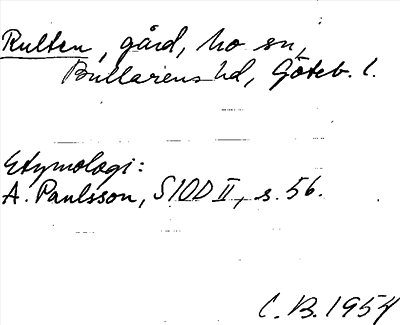 Rulten, gård, Mo sn,
Bullarens hd, Göteb. l.
Etymologi:
A. Paulsson, SIOD II, s. 56.
C. B. 1954